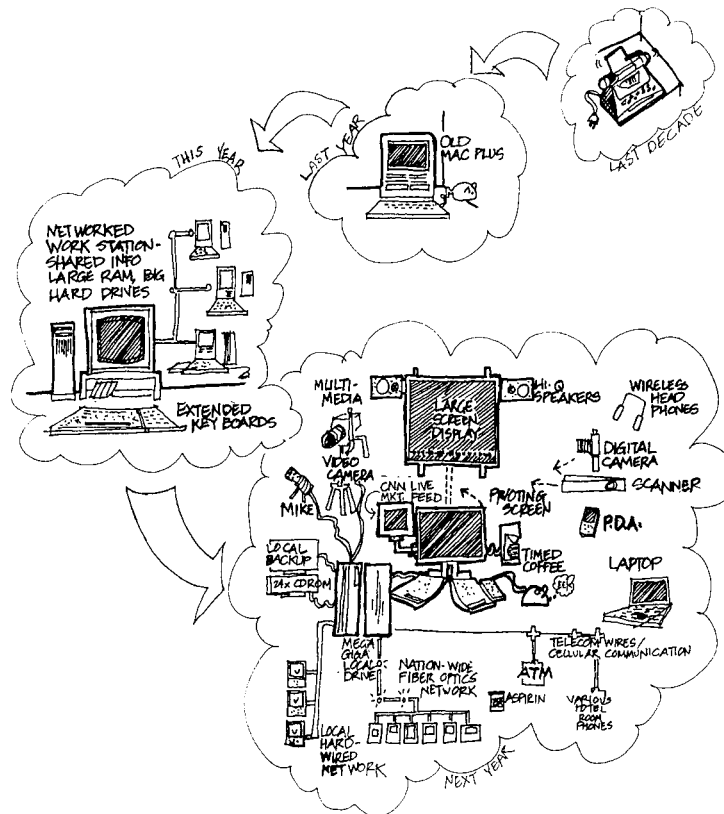 LAST DECADE
OLD
MAC PLUS
LAST YEAR
THIS YEAR
NETWORKED
WORK STATION-
SHARED INFO
LARGE RAM, BIG
HARD DRIVES
EXTENDED
KEY BOARDS
MULTI-
MEDIA
VIDEO
CAMERA
MIKE
LARGE
SCREEN
DISPLAY
HI-Q
SPEAKERS
WIRELESS
HEAD
PHONES
DIGITAL
CAMERA
SCANNER
P.D.A.
CNN LIVE
MKT. FEED
PIVOTING
SCREEN
TIMED
COFFEE
LAPTOP
LOCAL
BACKUP
24x CDROM
MEGA
GIGA
LOCAL
DRIVE
NATION-WIDE
FIBER OPTICS
NETWORK
TELECOM WIRES/
CELLULAR COMMUNICATION
ATM
ASPIRIN
VARIOUS
HOTEL
ROOM
PHONES
LOCAL
HARD-
WIRED
NETWORK
NEXT YEAR